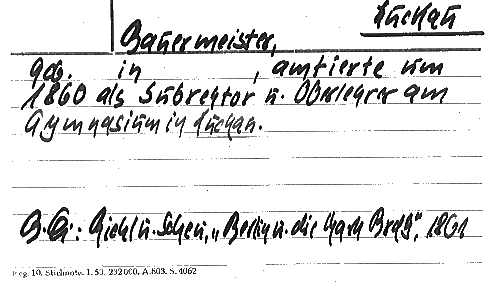 Luckau
Bauermeister,
geb. in , amtierte um
1860 als Subrektor u. Oberlehrer am
Gymnasium in Luckau.
B. G.: Riehl u. Scheu, „Berlin u. die Mark Brdbg", 1861
Reg. 10. Stichnote. 1. 50. 232000. A.803. S. 4062